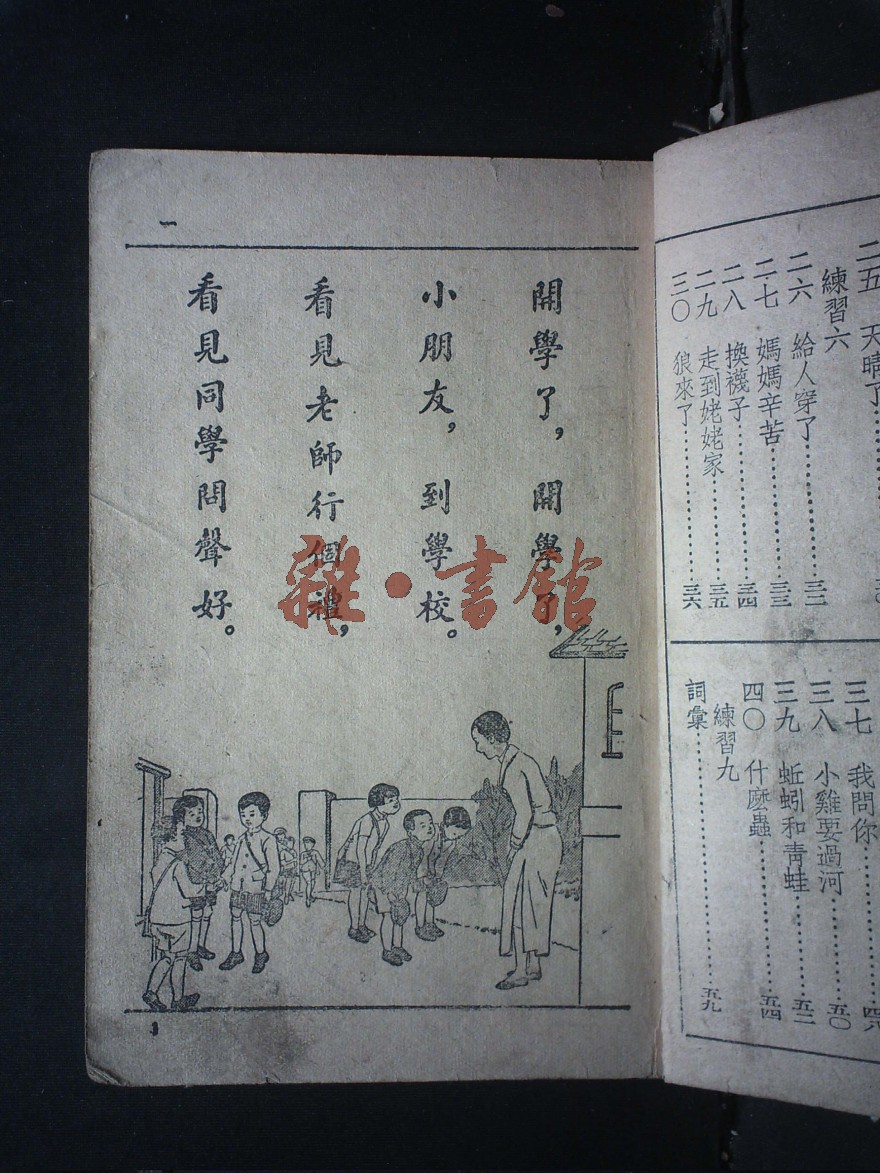 二五 天晴了
練習六
二六 給人穿了……三二
二七 媽媽辛苦……三三
二八 換襪子……三四
二九 走到姥姥家……三五
三〇 狼來了……三六
三七 我問你
三八 小雞要過河……五〇
三九 蚯蚓和青蛙……五二
四〇 什麼蟲……五四
練習九
詞彙……五九
一
開學了，開學了，
小朋友，到學校。
看見老師行個禮，
看見同學問聲好。
雜·書館
1